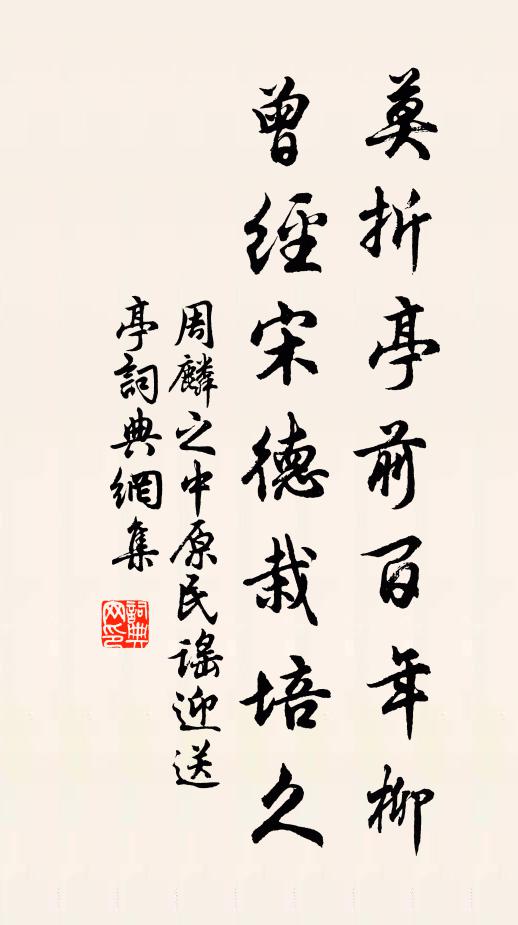 莫折亭前百年柳
曾經宋德栽培久
周麟之中原民謠迎送
亭詞典網集
詞典
网印